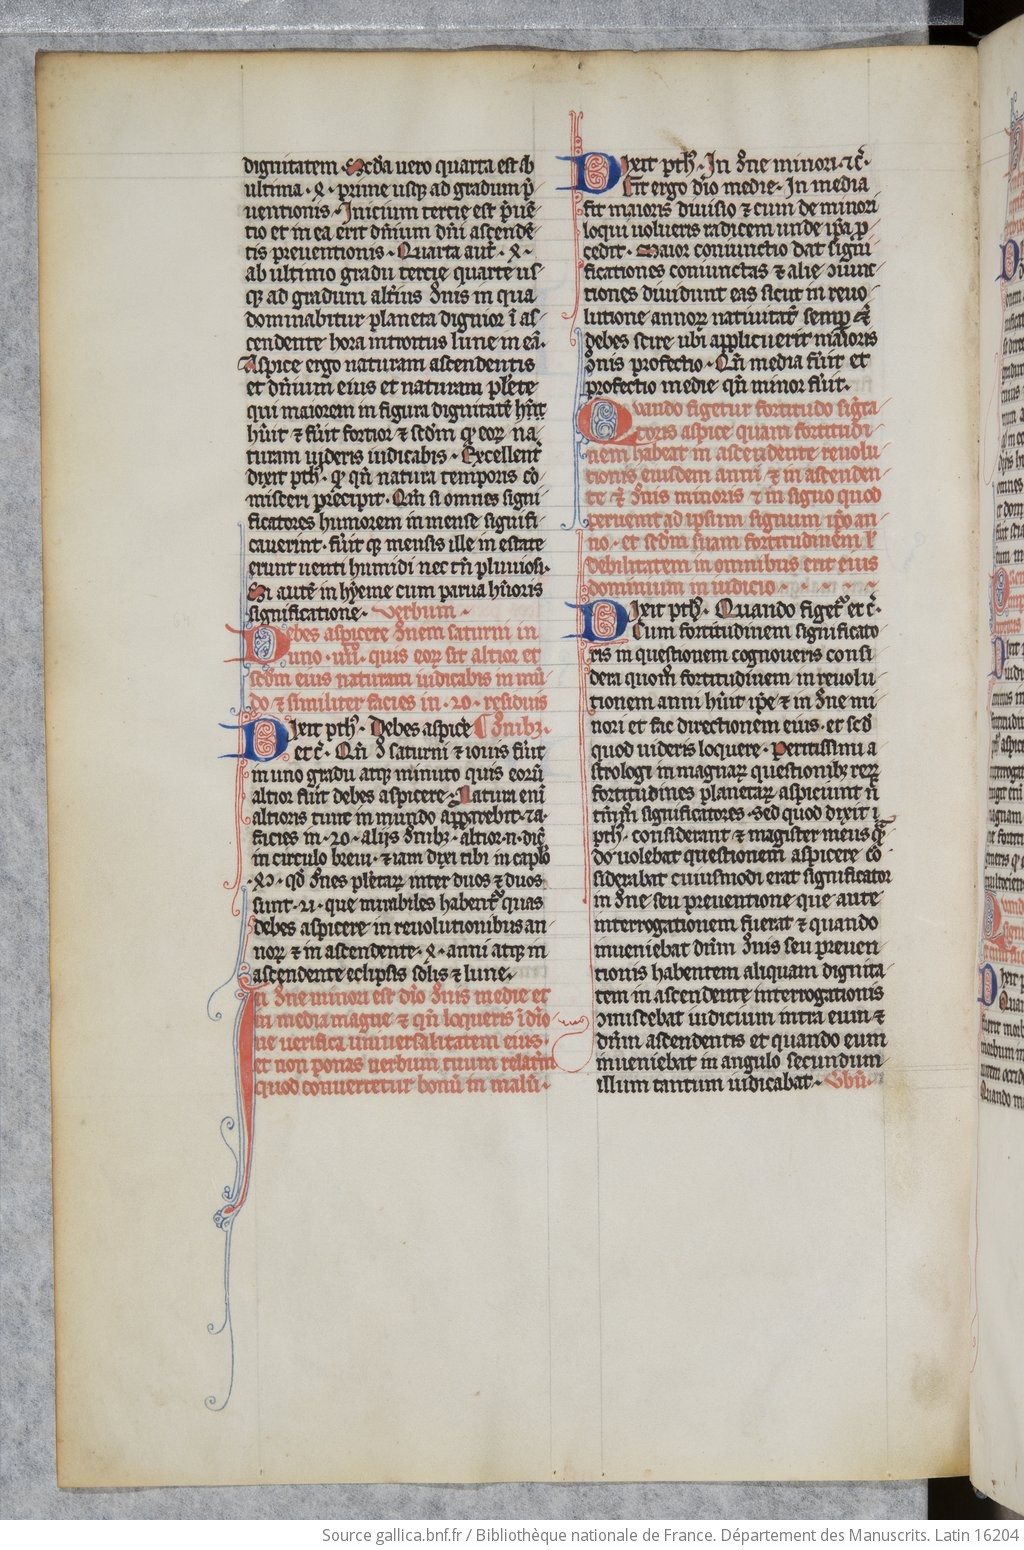 dignitatem. Scda vero quarta est ab
ultima . x . prime usq; ad gradum p̄
uentionis. Inicium tercie est p̄uē
tio et in ea erit dn̄ium dn̄i ascendē
tis preuentionis. Quarta aut̄ . x .
ab ultimo gradu tercie quarte us
q; ad gradum alt̄ius ꝯ̄nis in qua
dominabitur planeta dignior ī as
cendente hora introitus lune in eā.
Aspice ergo naturam ascendentis
et dn̄ium eius et naturam plēte
qui maiorem in figura dignitatē hn̄t
hūit ⁊ fūit fortior ⁊ scdm̄ q̄ eoꝝ na
turam uideris iudicabis. Excellent̄
dixit pth̄. q̄ qn̄ natura temporis cō
misceri precipit. Qm̄ si omnes signi
ficatores humorem in mense signifi
cauerint. fūit q; mensis ille in estate
erunt uenti humidi nec tn̄ pluuiosi.
Si autē in hyeme cum parua hūoris
significatione. Verbum.
Debes aspicere ꝯ̄nem saturni in
uno . un̄ . quis eoꝝ sit altior et
scdm̄ eius naturam iudicabis in mū
do ⁊ similiter facies in . 20 . residuis
Dixit pth̄. Debes aspice ꝯ̄nibꝫ.
et c̄. Qn̄ ꝯ̄ saturni ⁊ iouis fūit
in uno gradu atq; minuto quis eorū
altior fūit debes aspicere. Natura enī
altioris tunc in mundo apparebit. ⁊a.
facies in . 20 . alijs ꝯ̄nibꝫ. altior . n . dic̄
in circulo breui. ⁊ iam dixi tibi in caplo
qd̄ ꝯ̄nes plētaꝝ inter duos ⁊ duos
sunt . 21 . que mirabiles habent̄ quas
debes aspicere in reuolutionibus an
noꝝ ⁊ in ascendente . x . anni atq; in
ascendente eclipsis solis ⁊ lune.
In ꝯ̄ne minori est dīo ꝯ̄nis medie et
in media magne ⁊ qn̄ loqueris ī dīo
ne uerifica uniuersalitatem eius.
et non ponas uerbum tuum relatm̄
quod conuertetur bonū in malū.
Dixit pth̄. In ꝯ̄ne minori. ⁊c̄.
Fit ergo dīo medie. In media
fit maioris diuisio ⁊ cum de minori
loqui uolueris radicem unde ip̄a p
cedit. Maior coniunctio dat signi
ficationes coniunctas ⁊ alie ꝯiunc
tiones diuidunt eas sicut in reuo
lutione annoꝝ natiuitat̄ semp
debes scire ubi applicuerit maioris
ꝯ̄nis profectio. Qn̄ media fūit et
profectio medie qn̄ minor fūit.
Quando figetur fortitudo siḡca
toris aspice quam fortitudi
nem habeat in ascendente reuolu
tionis eiusdem anni ⁊ in ascenden
te ꝯ̄nis minoris ⁊ in signo quod
peruenit ad ipsum signum ip̄o an
no. et scdm̄ suam fortitudinem ł
debilitatem in omnibus erit eius
dominium in iudicio.
Dixit pth̄. Quando figet̄ et c̄.
Cum fortitudinem significato
ris in questionem cognoueris consi
dera quom̄ fortitudinem in reuolu
tionem anni hūit ip̄e ⁊ in ꝯ̄ne mi
nori et fac directionem eius. et scd̄
quod uideris loquere. Peritissimi a
strologi in magnaꝝ questionibꝫ reꝝ
fortitudines planetaꝝ aspiciunt n̄
tm̄m̄ significatores. Sed quod dixit
pth̄. considerant ⁊ magister meus qn̄
do uolebat questionem aspicere cō
siderabat cuiusmodi erat significator
in ꝯ̄ne seu preuentione que ante
interrogationem fuerat ⁊ quando
inueniebat dn̄m ꝯ̄nis seu preuen
tionis habentem aliquam dignita
tem in ascendente interrogationis
ꝯmiscebat iudicium intra eum ⁊
dn̄m ascendentis et quando eum
inueniebat in angulo secundum
illum tantum iudicabat. Vbū.
Source gallica.bnf.fr / Bibliothèque nationale de France. Département des Manuscrits. Latin 16204